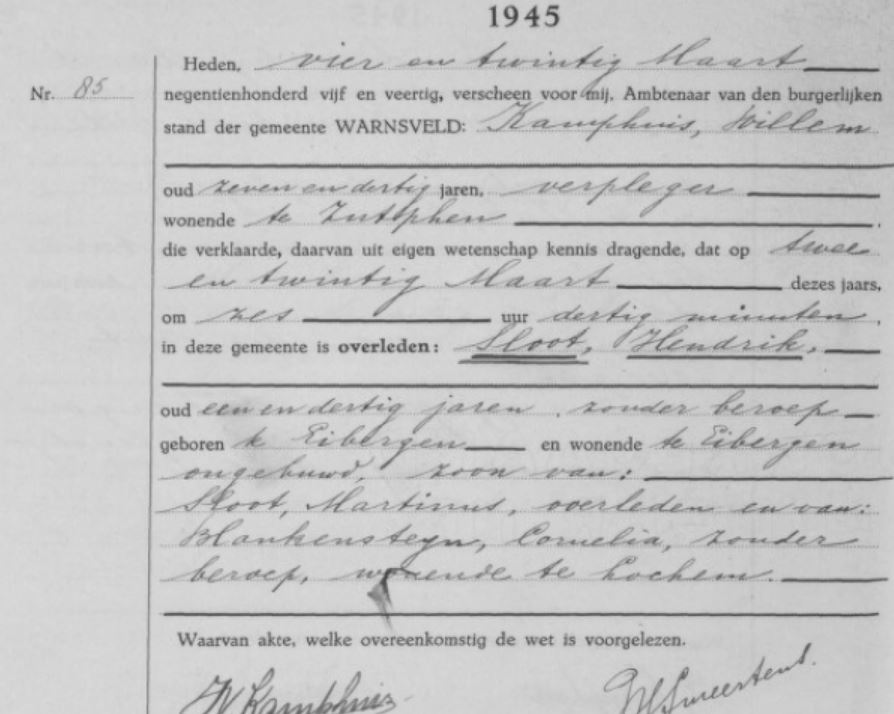 1945
Heden, vier en twintig Maart
Nr. 85 negentienhonderd vijf en veertig, verscheen voor mij, Ambtenaar van den burgerlijken
stand der gemeente WARNSVELD: Kamphuis, Willem
oud zeven en dertig jaren, verpleger
wonende te Zutphen
die verklaarde, daarvan uit eigen wetenschap kennis dragende, dat op twee
en twintig Maart dezes jaars,
om zes uur dertig minuten,
in deze gemeente is overleden: Sloot, Hendrik,
oud een en dertig jaren, zonder beroep
geboren te Eibergen en wonende te Eibergen
ongehuwd, zoon van:
Sloot, Martinus, overleden en van:
Blankensteyn, Cornelia, zonder
beroep, wonende te Lochem.
Waarvan akte, welke overeenkomstig de wet is voorgelezen.
W Kamphuis